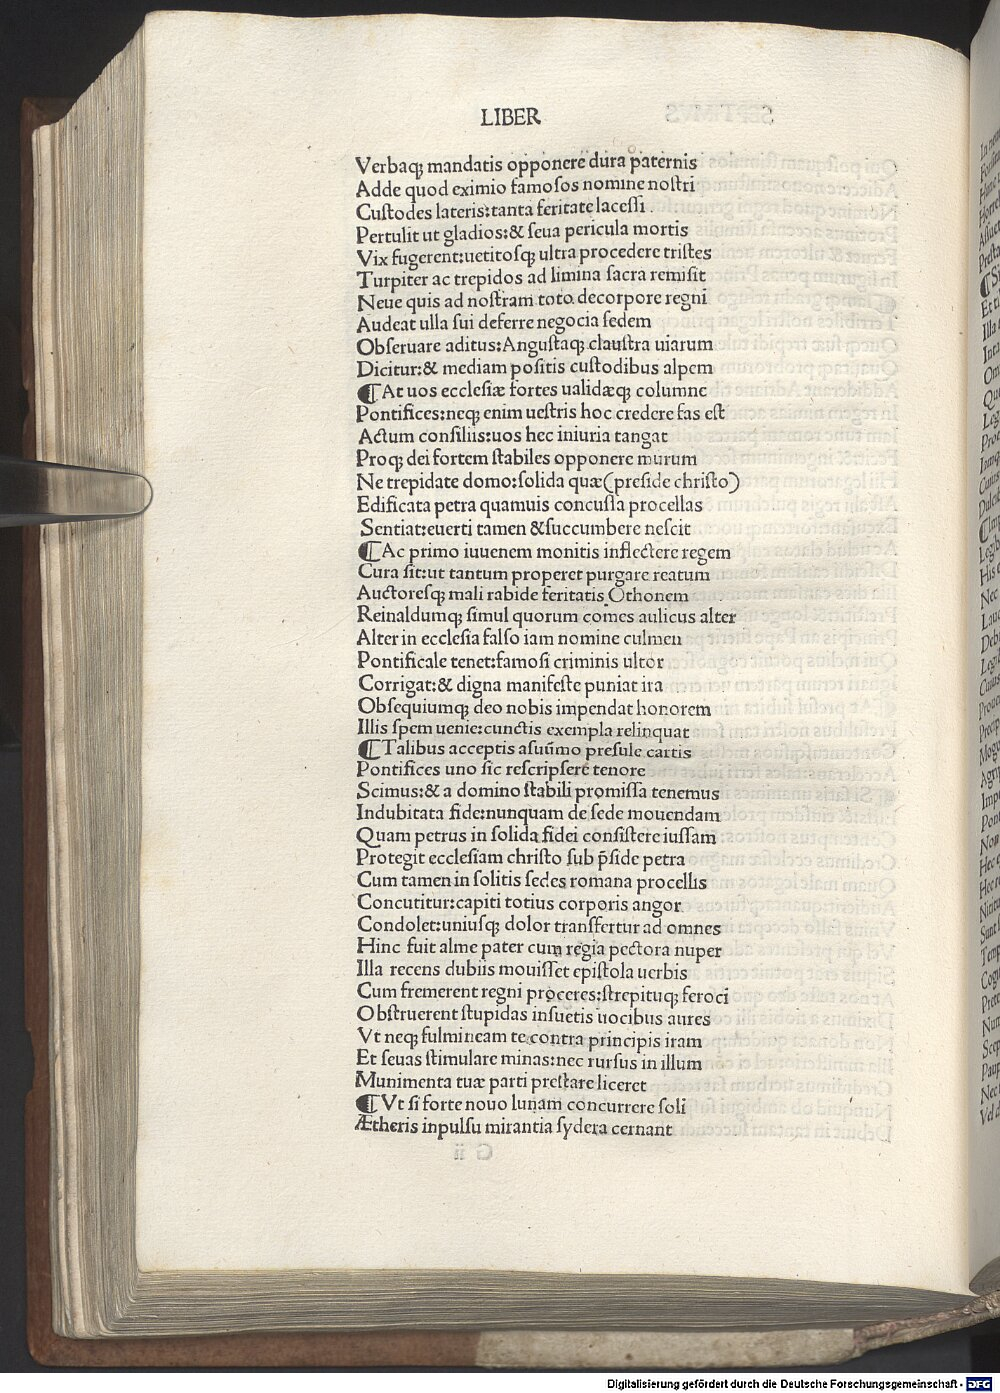 LIBER
Verbaqꝫ mandatis opponere dura paternis
Adde quod eximio famoſos nomine noſtri
Cuſtodes lateris:tanta feritate laceſſi.
Pertulit ut gladios:& ſeua pericula mortis
Vix fugerent:uetitoſqꝫ ultra procedere triſtes
Turpiter ac trepidos ad limina ſacra remiſit
Neue quis ad noſtram toto decorpore regni
Audeat ulla ſui deferre negocia ſedem
Obſeruare aditus:Anguſtaqꝫ clauſtra uiarum
Dicitur:& mediam poſitis cuſtodibus alpem
¶At uos eccleſiæ fortes ualidæqꝫ columne
Pontifices:neqꝫ enim ueſtris hoc credere fas eſt
Actum conſiliis:uos hec iniuria tangat
Proqꝫ dei fortem ſtabiles opponere murum
Ne trepidate domo:ſolida quæ(preſide chriſto)
Edificata petra quamuis concuſſa procellas
Sentiat:euerti tamen &ſuccumbere neſcit
¶Ac primo iuuenem monitis inflectere regem
Cura ſit:ut tantum properet purgare reatum
Auctoreſqꝫ mali rabide feritatis Othonem
Reinaldumqꝫ ſimul quorum comes aulicus alter
Alter in eccleſia falſo iam nomine culmen
Pontificale tenet:famoſi criminis ultor
Corrigat:& digna manifeſte puniat ira
Obſequiumqꝫ deo nobis impendat honorem
Illis ſpem uenie:cunctis exempla relinquat
¶Talibus acceptis aſuūmo preſule cartis
Pontifices uno ſic reſcripſere tenore
Scimus:& a domino ſtabili promiſſa tenemus
Indubitata fide:nunquam de ſede mouendam
Quam petrus in ſolida fidei conſiſtere iuſſam
Protegit eccleſiam chriſto ſub p̄ſide petra
Cum tamen in ſolitis ſedes romana procellis
Concutitur:capiti totius corporis angor
Condolet:uniuſqꝫ dolor tranſfertur ad omnes
Hinc fuit alme pater cum regia pectora nuper
Illa recens dubiis mouiſſet epiſtola uerbis
Cum fremerent regni proceres:ſtrepituqꝫ feroci
Obſtruerent ſtupidas inſuetis uocibus aures
Vt neqꝫ fulmineam te contra principis iram
Et ſeuas ſtimulare minas:nec rurſus in illum
Munimenta tuæ parti preſtare liceret
¶Vt ſi forte nouo lunam concurrere ſoli
Ætheris inpulſu mirantia ſydera cernant
Digitalisierung gefördert durch die Deutsche Forschungsgemeinschaft - DFG